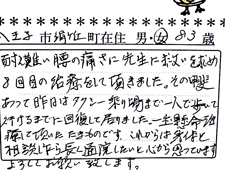 八王子市絹ケ丘町在住 男・女 83歳
耐え難い腰の痛さに先生に救いを求め
8回目の治療をして頂きました。その甲斐
あって昨日はタクシー乗り場まで一人で歩いて
行けるまでに回復して居りました。一生懸命治
療して頂いたたまものです。これからは身体と
相談しながら長く通院したいと心から思っています
よろしくお願い致します。